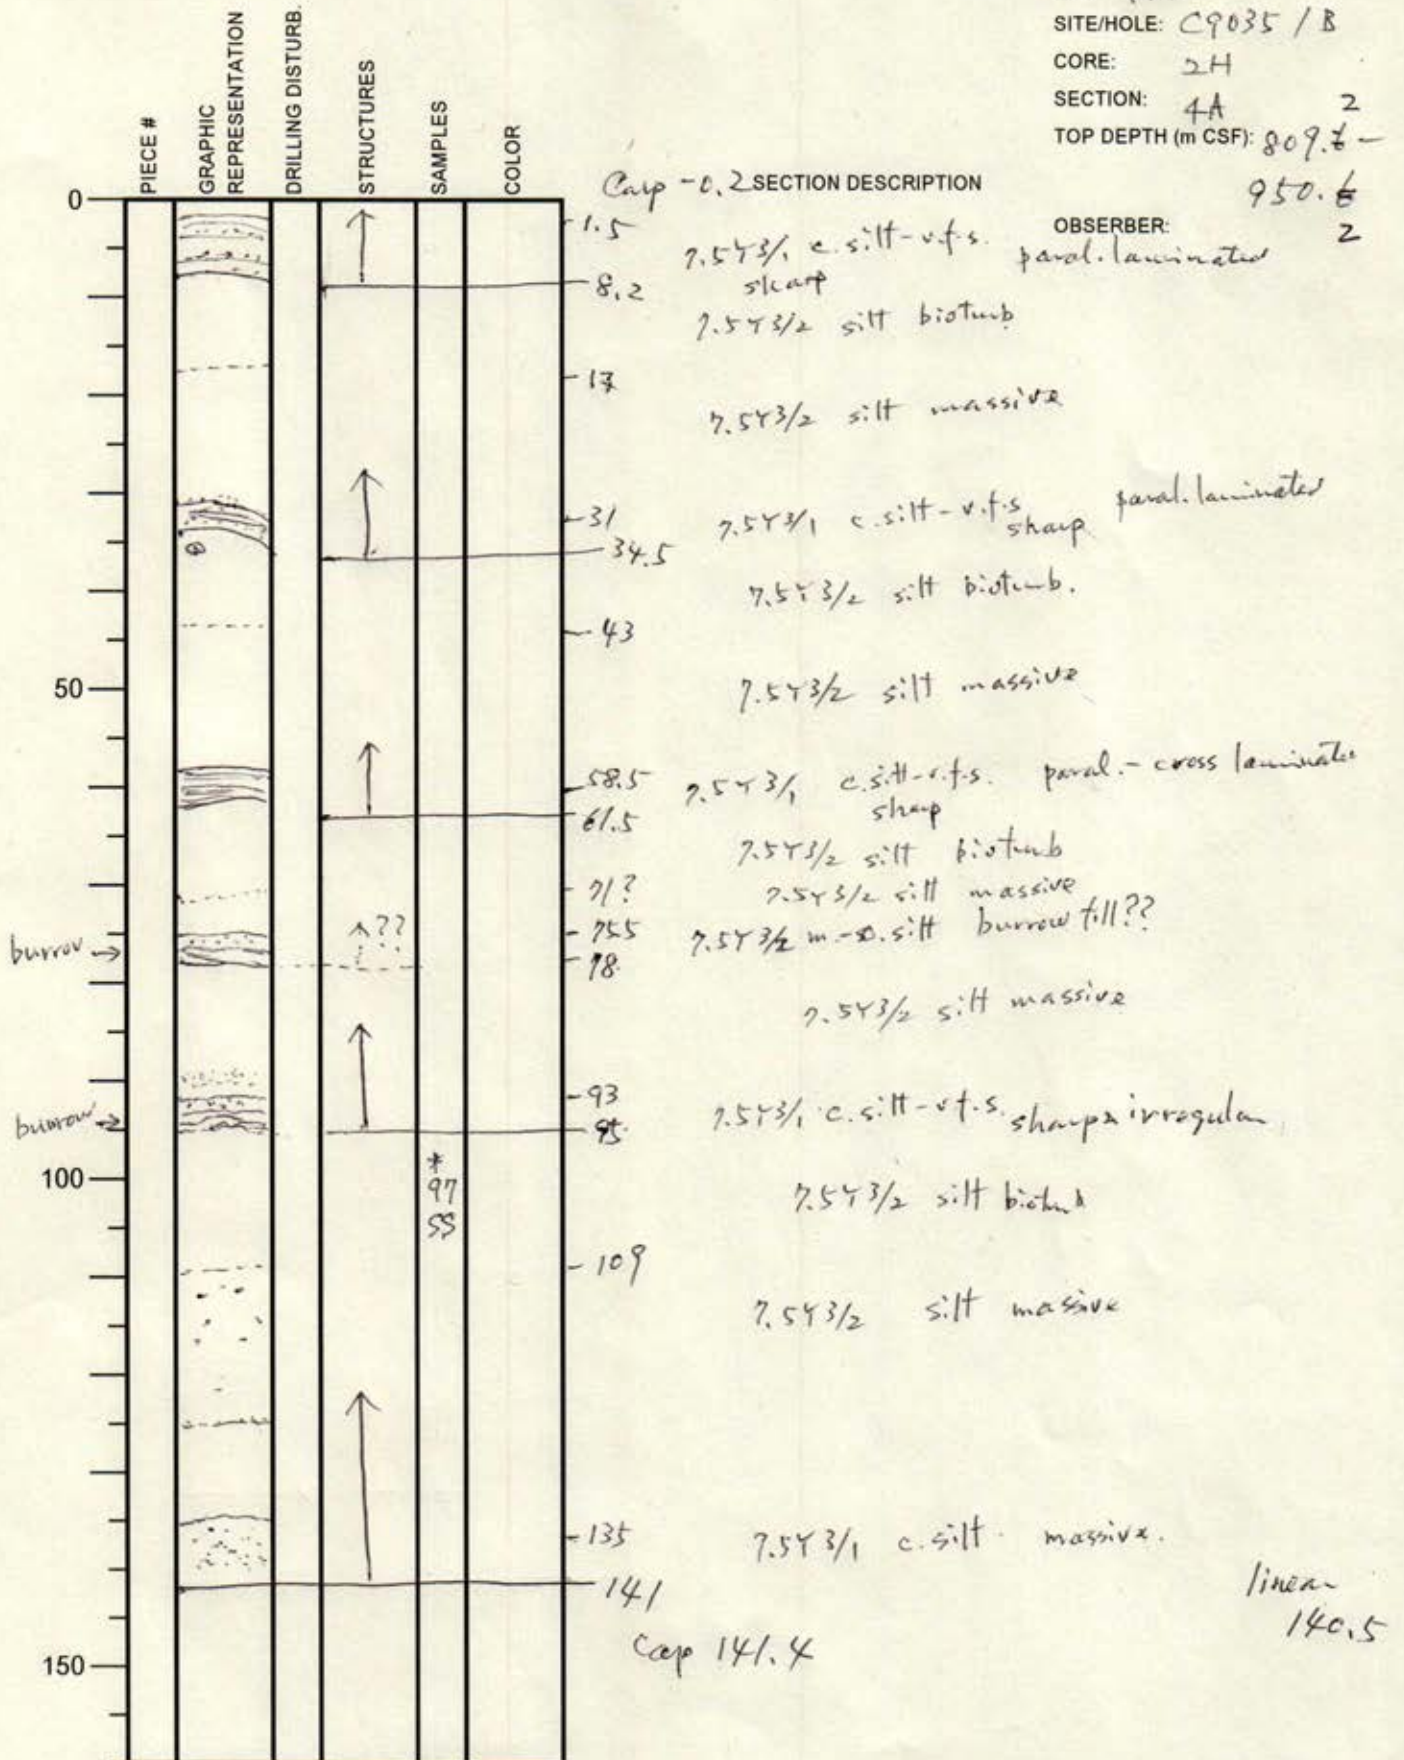 SITE/HOLE: C9035 / B
CORE: 2H
SECTION: 4A 2
TOP DEPTH (m CSF): 809. -
950.
OBSERBER: 2
PIECE #
GRAPHIC REPRESENTATION
DRILLING DISTURB.
STRUCTURES
SAMPLES
COLOR
Cap -0.2 SECTION DESCRIPTION
0
1.5
7.5Y3/1 c.silt-v.f.s. paral. laminated
sharp
8.2
7.5Y3/2 silt bioturb
17
7.5Y3/2 silt massive
31
7.5Y3/1 c.silt-v.f.s paral. laminated
sharp
34.5
7.5Y3/2 silt bioturb.
43
50
7.5Y3/2 silt massive
58.5
7.5Y3/1 c.silt-v.f.s. paral.-cross laminated
sharp
61.5
7.5Y3/2 silt bioturb
71?
7.5Y3/2 silt massive
??
75.5
7.5Y3/2 m.- silt burrow fill??
burrow →
78
7.5Y3/2 silt massive
93
7.5Y3/1 c.silt-v.f.s. sharp irregular
burrow →
95
*
97
SS
100
7.5Y3/2 silt bioturb
109
7.5Y3/2 silt massive
135
7.5Y3/1 c.silt massive.
141
linear
140.5
Cap 141.4
150